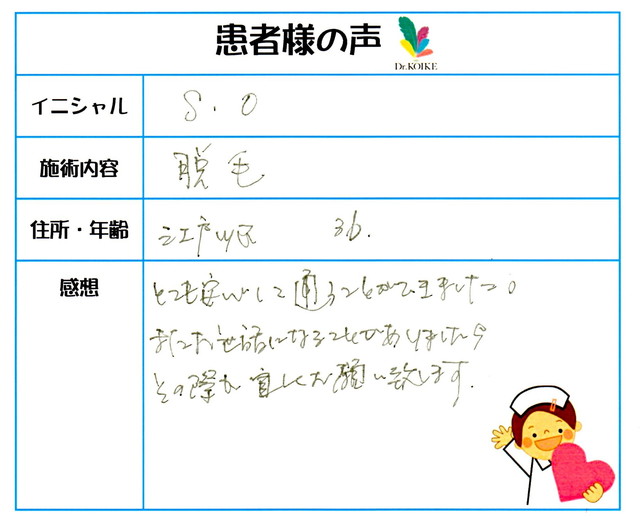 患者様の声
Dr.KOIKE
イニシャル S.O
施術内容 脱毛
住所・年齢 江戸川区 36.
感想
とても安心して通うことができました。
またお世話になることがありましたら
その際も宜しくお願い致します.